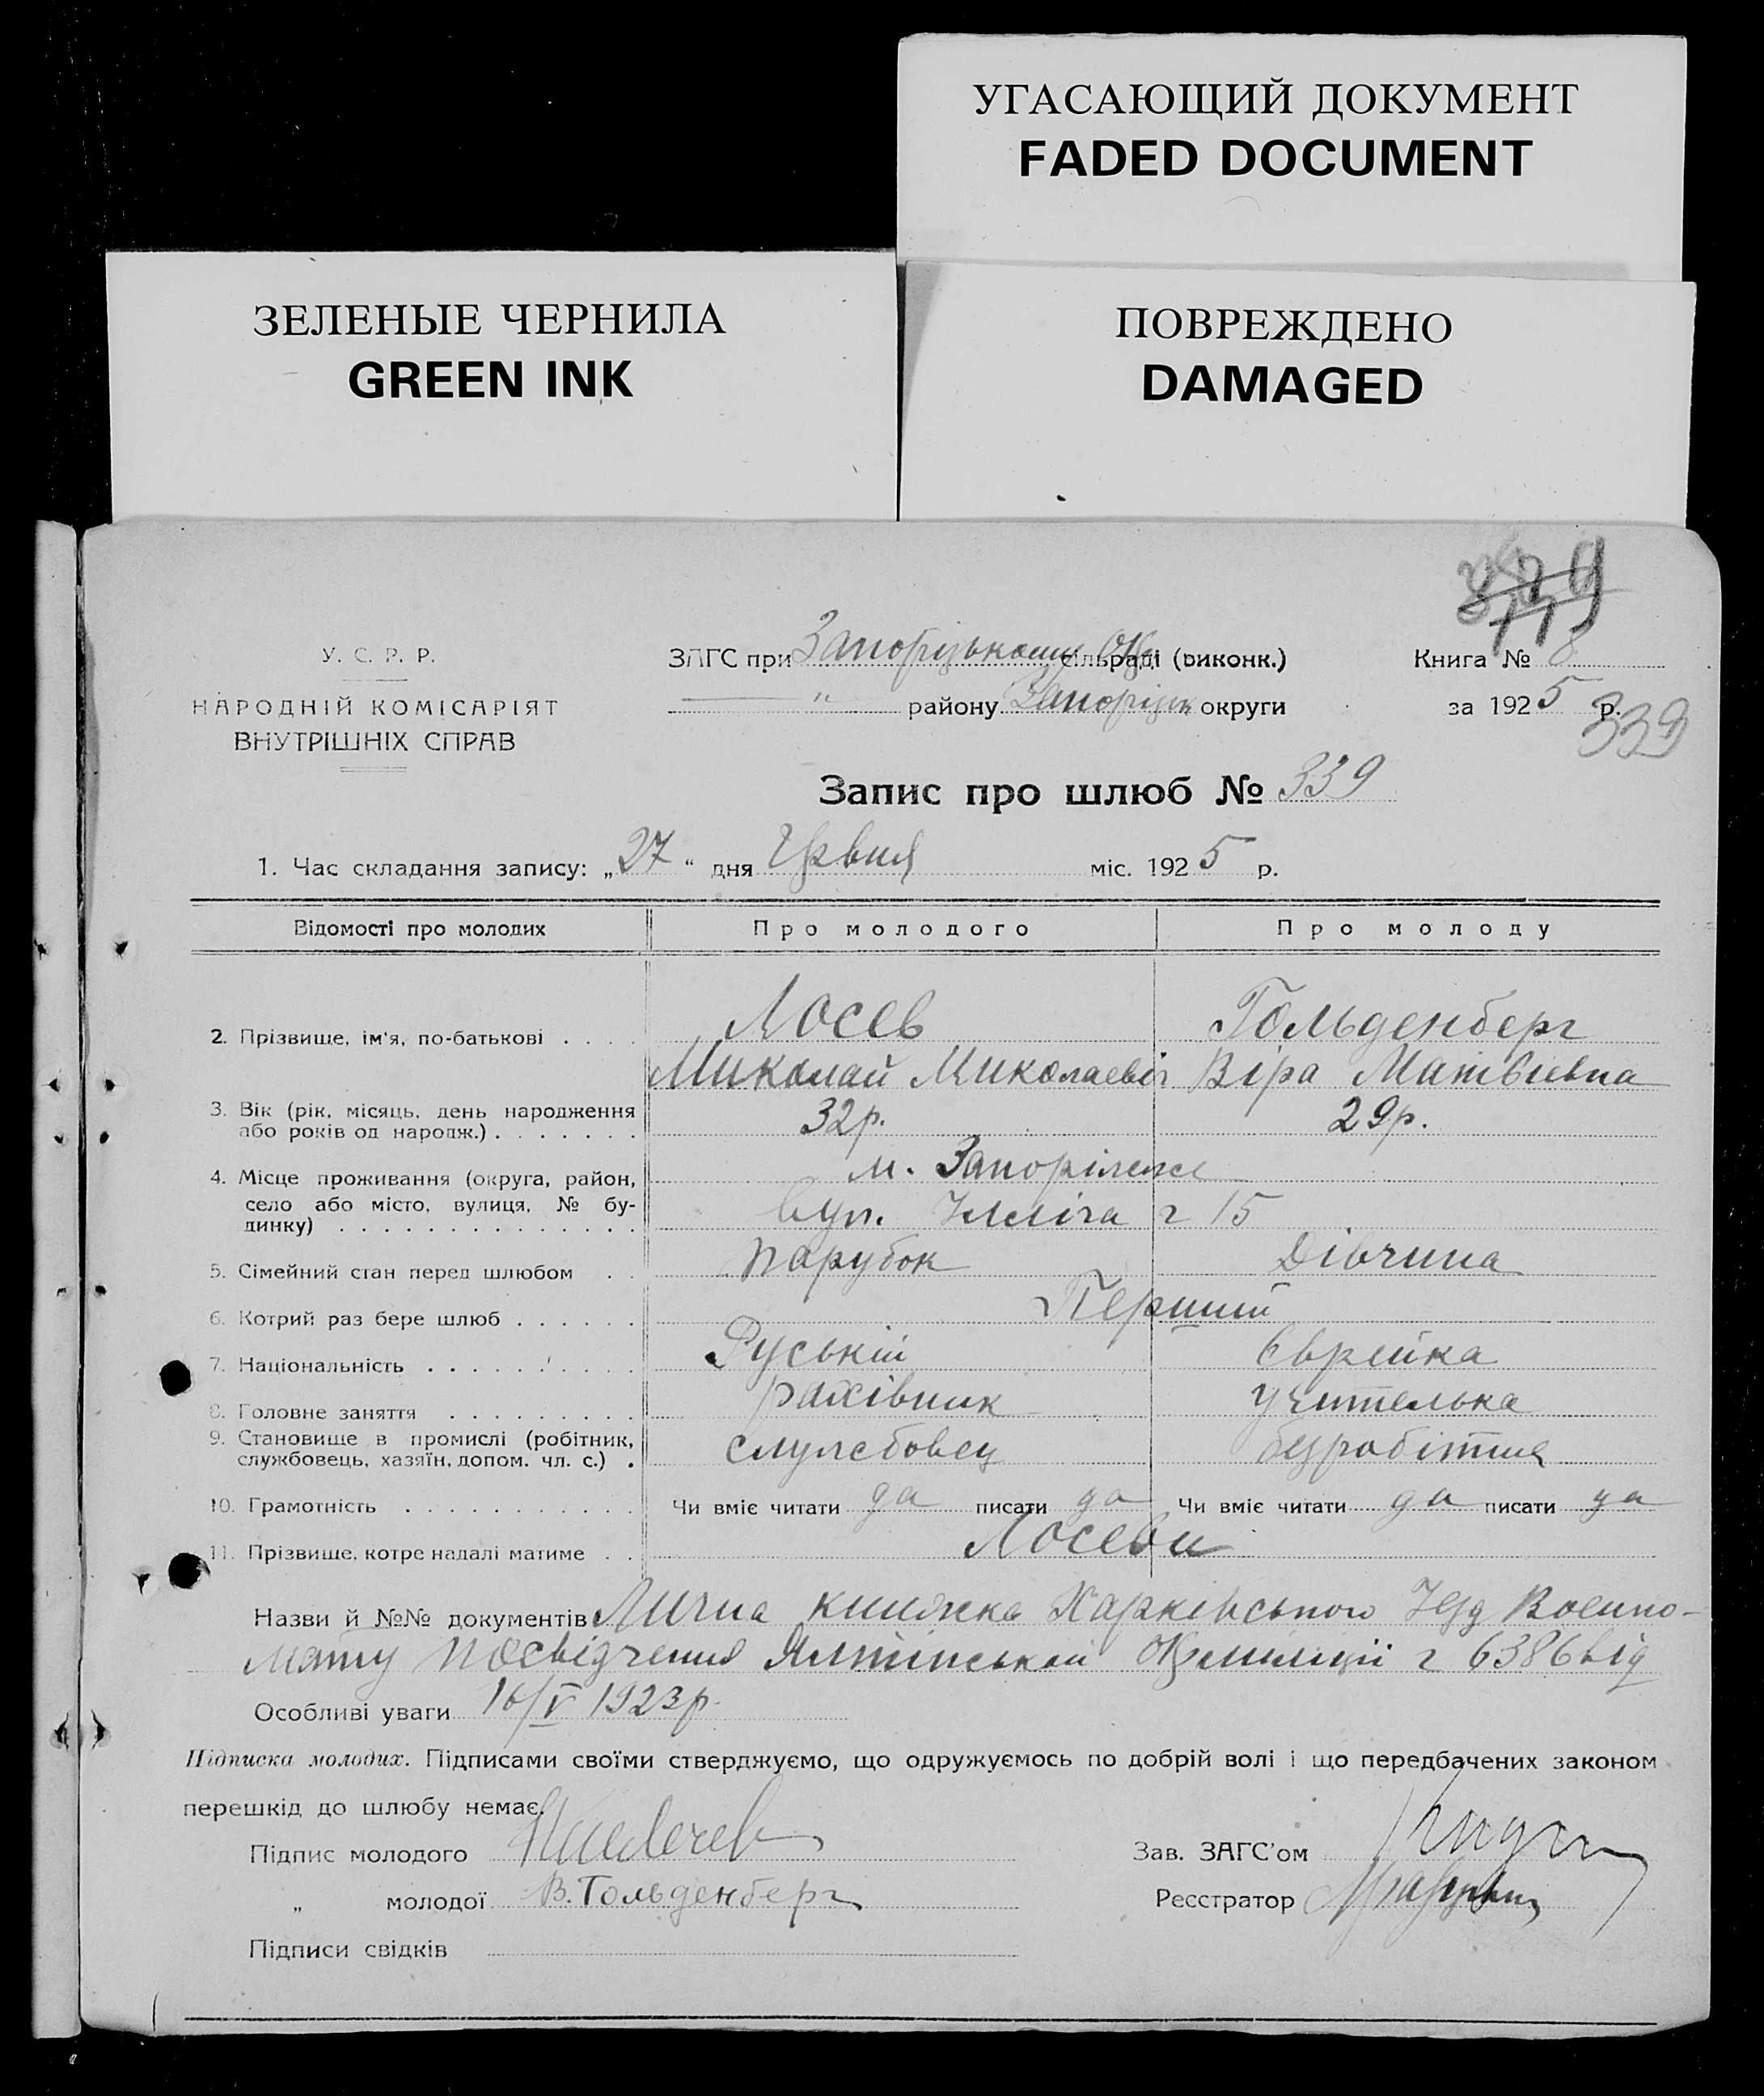 УГАСАЮЩИЙ ДОКУМЕНТ
FADED DOCUMENT
ЗЕЛЕНЫЕ ЧЕРНИЛА
GREEN INK
ПОВРЕЖДЕНО
DAMAGED
У. С. Р. Р.
НАРОДНІЙ КОМІСАРІЯТ
ВНУТРІШНІХ СПРАВ
ЗАГС при Запорізькому Окр сільраді (виконк.)
— " — району Запорізьк округи
Книга № 8
за 1925 р.
339
Запис про шлюб № 339
1. Час складання запису: „27" дня Червня міс. 1925 р.
Відомості про молодих Про молодого Про молоду
2. Прізвище, ім'я, по-батькові . . . . Лосев Гольденберг
Миколай Миколаевіч Віра Матвіевна
3. Вік (рік, місяць, день народження
або років од народж.) . . . . . . . 32р. 29р.
4. Місце проживання (округа, район, м. Запоріжже
село або місто, вулиця, № бу-
динку) . . . . . . . . . . . . . . вул. Ілліча № 15
5. Сімейний стан перед шлюбом . . парубок Дівчина
6. Котрий раз бере шлюб . . . . . . Перший
7. Національність . . . . . . . . . Руській Єврейка
8. Головне заняття . . . . . . . . . рахівник учителька
9. Становище в промислі (робітник,
службовець, хазяїн, допом. чл. с.) . службовец безробітня
10. Грамотність . . . . . . . . . . . Чи вміє читати да писати да Чи вміє читати да писати да
11. Прізвище, котре надалі матиме . . Лосеви
Назви й №№ документів Лична книжка Харківського Уезд Военко-
мату посвідчення Ялтінськой Окрмиліціі № 6386 від
Особливі уваги 16/V 1923р.
Підписка молодих. Підписами своїми стверджуємо, що одружуємось по добрій волі і що передбачених законом
перешкід до шлюбу немає.
Підпис молодого
Зав. ЗАГС'ом
„ молодої В. Гольденберг
Реєстратор
Підписи свідків